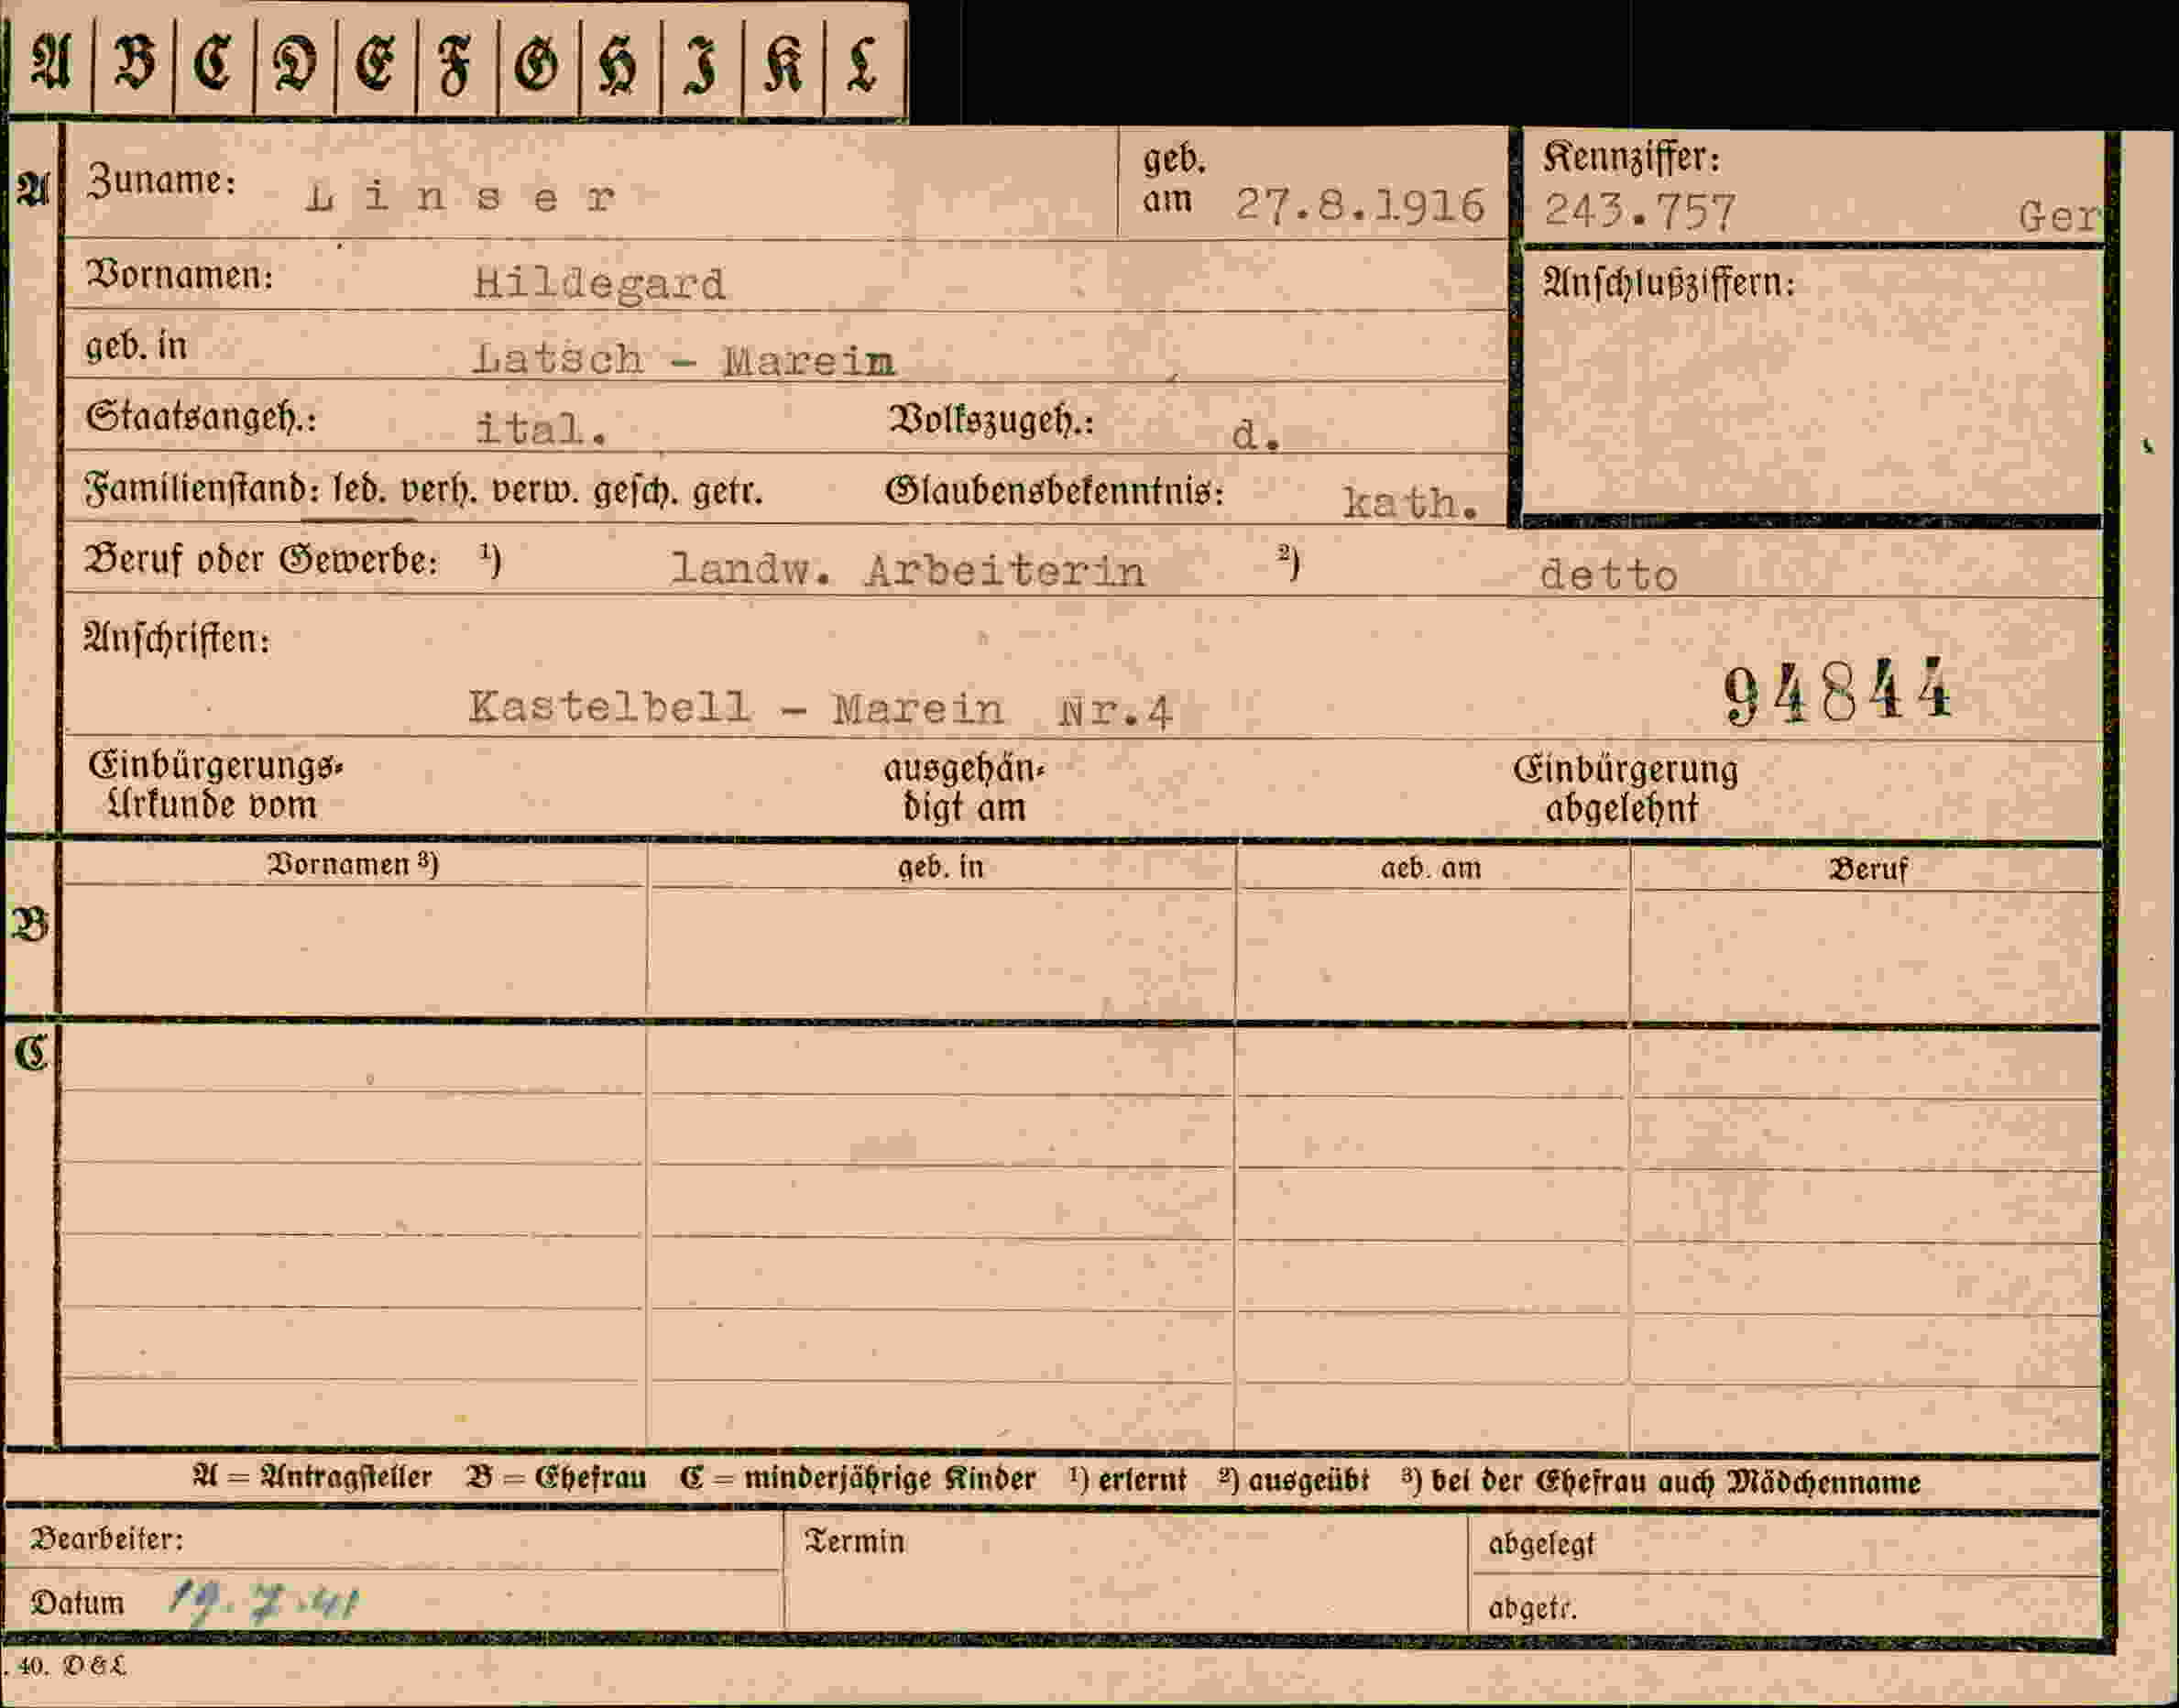 A B C D E F G H I K L
A Zuname: Linser geb. am 27.8.1916 Kennziffer: 243.757 Ger
Vornamen: Hildegard Anschlußziffern:
geb. in Latsch - Marein
Staatsangeh.: ital. Volkszugeh.: d.
Familienstand: led. verh. verw. gesch. getr. Glaubensbekenntnis: kath.
Beruf oder Gewerbe: ¹) landw. Arbeiterin ²) detto
Anschriften:
Kastelbell - Marein Nr.4 94844
Einbürgerungs- ausgehän- Einbürgerung
Urkunde vom digt am abgelehnt
Vornamen ³) geb. in geb. am Beruf
B
C
A = Antragsteller B = Ehefrau C = minderjährige Kinder ¹) erlernt ²) ausgeübt ³) bei der Ehefrau auch Mädchenname
Bearbeiter: Termin abgelegt
Datum 19.7.41 abgetr.
. 40. D & L